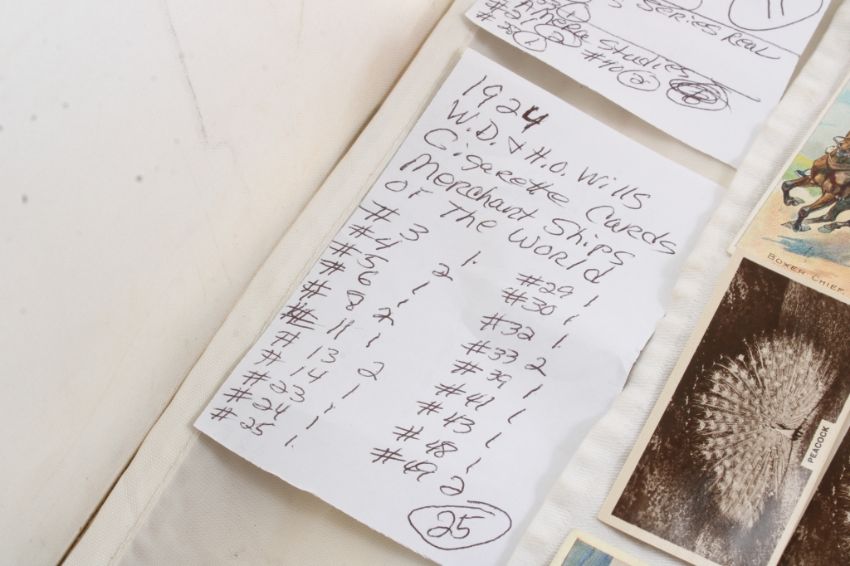 SERIES REAL
11
Studies
#40 2
1924
W.D. & H.O. Wills
Cigarette Cards
Merchant Ships
of The World
#3 1
#4 2
#5 1
#6 1
#8 2
#11 1
#13 2
#14 1
#23 1
#24 1
#25 1
#29 1
#30 1
#32 1
#33 2
#39 1
#41 1
#43 1
#48 1
#49 2
25
BOXER CHIEF
PEACOCK